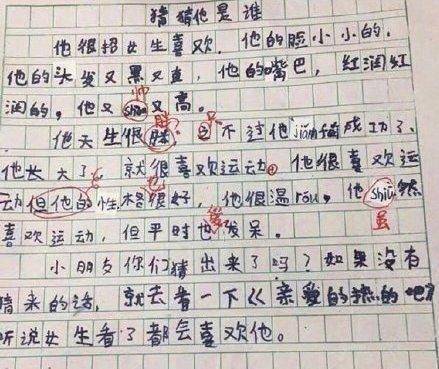 猜猜他是谁
他很招女生喜欢，他的脸小小的，
他的头发又黑又直，他的嘴巴，红润红
润的，他又shuai又高。
帅
他天生很胖，不过他jiǎn肥成功了、
胖
只
他长大了，就很喜欢运动。他很喜欢运
动但他的性格很好，他很温róu，他shuī然
也
虽
喜欢运动，但平时也发呆。
常
小朋友你们猜出来了吗？如果没有
猜来的话，就去看一下《亲爱的热的吧》
听说女生看了都会喜欢他。